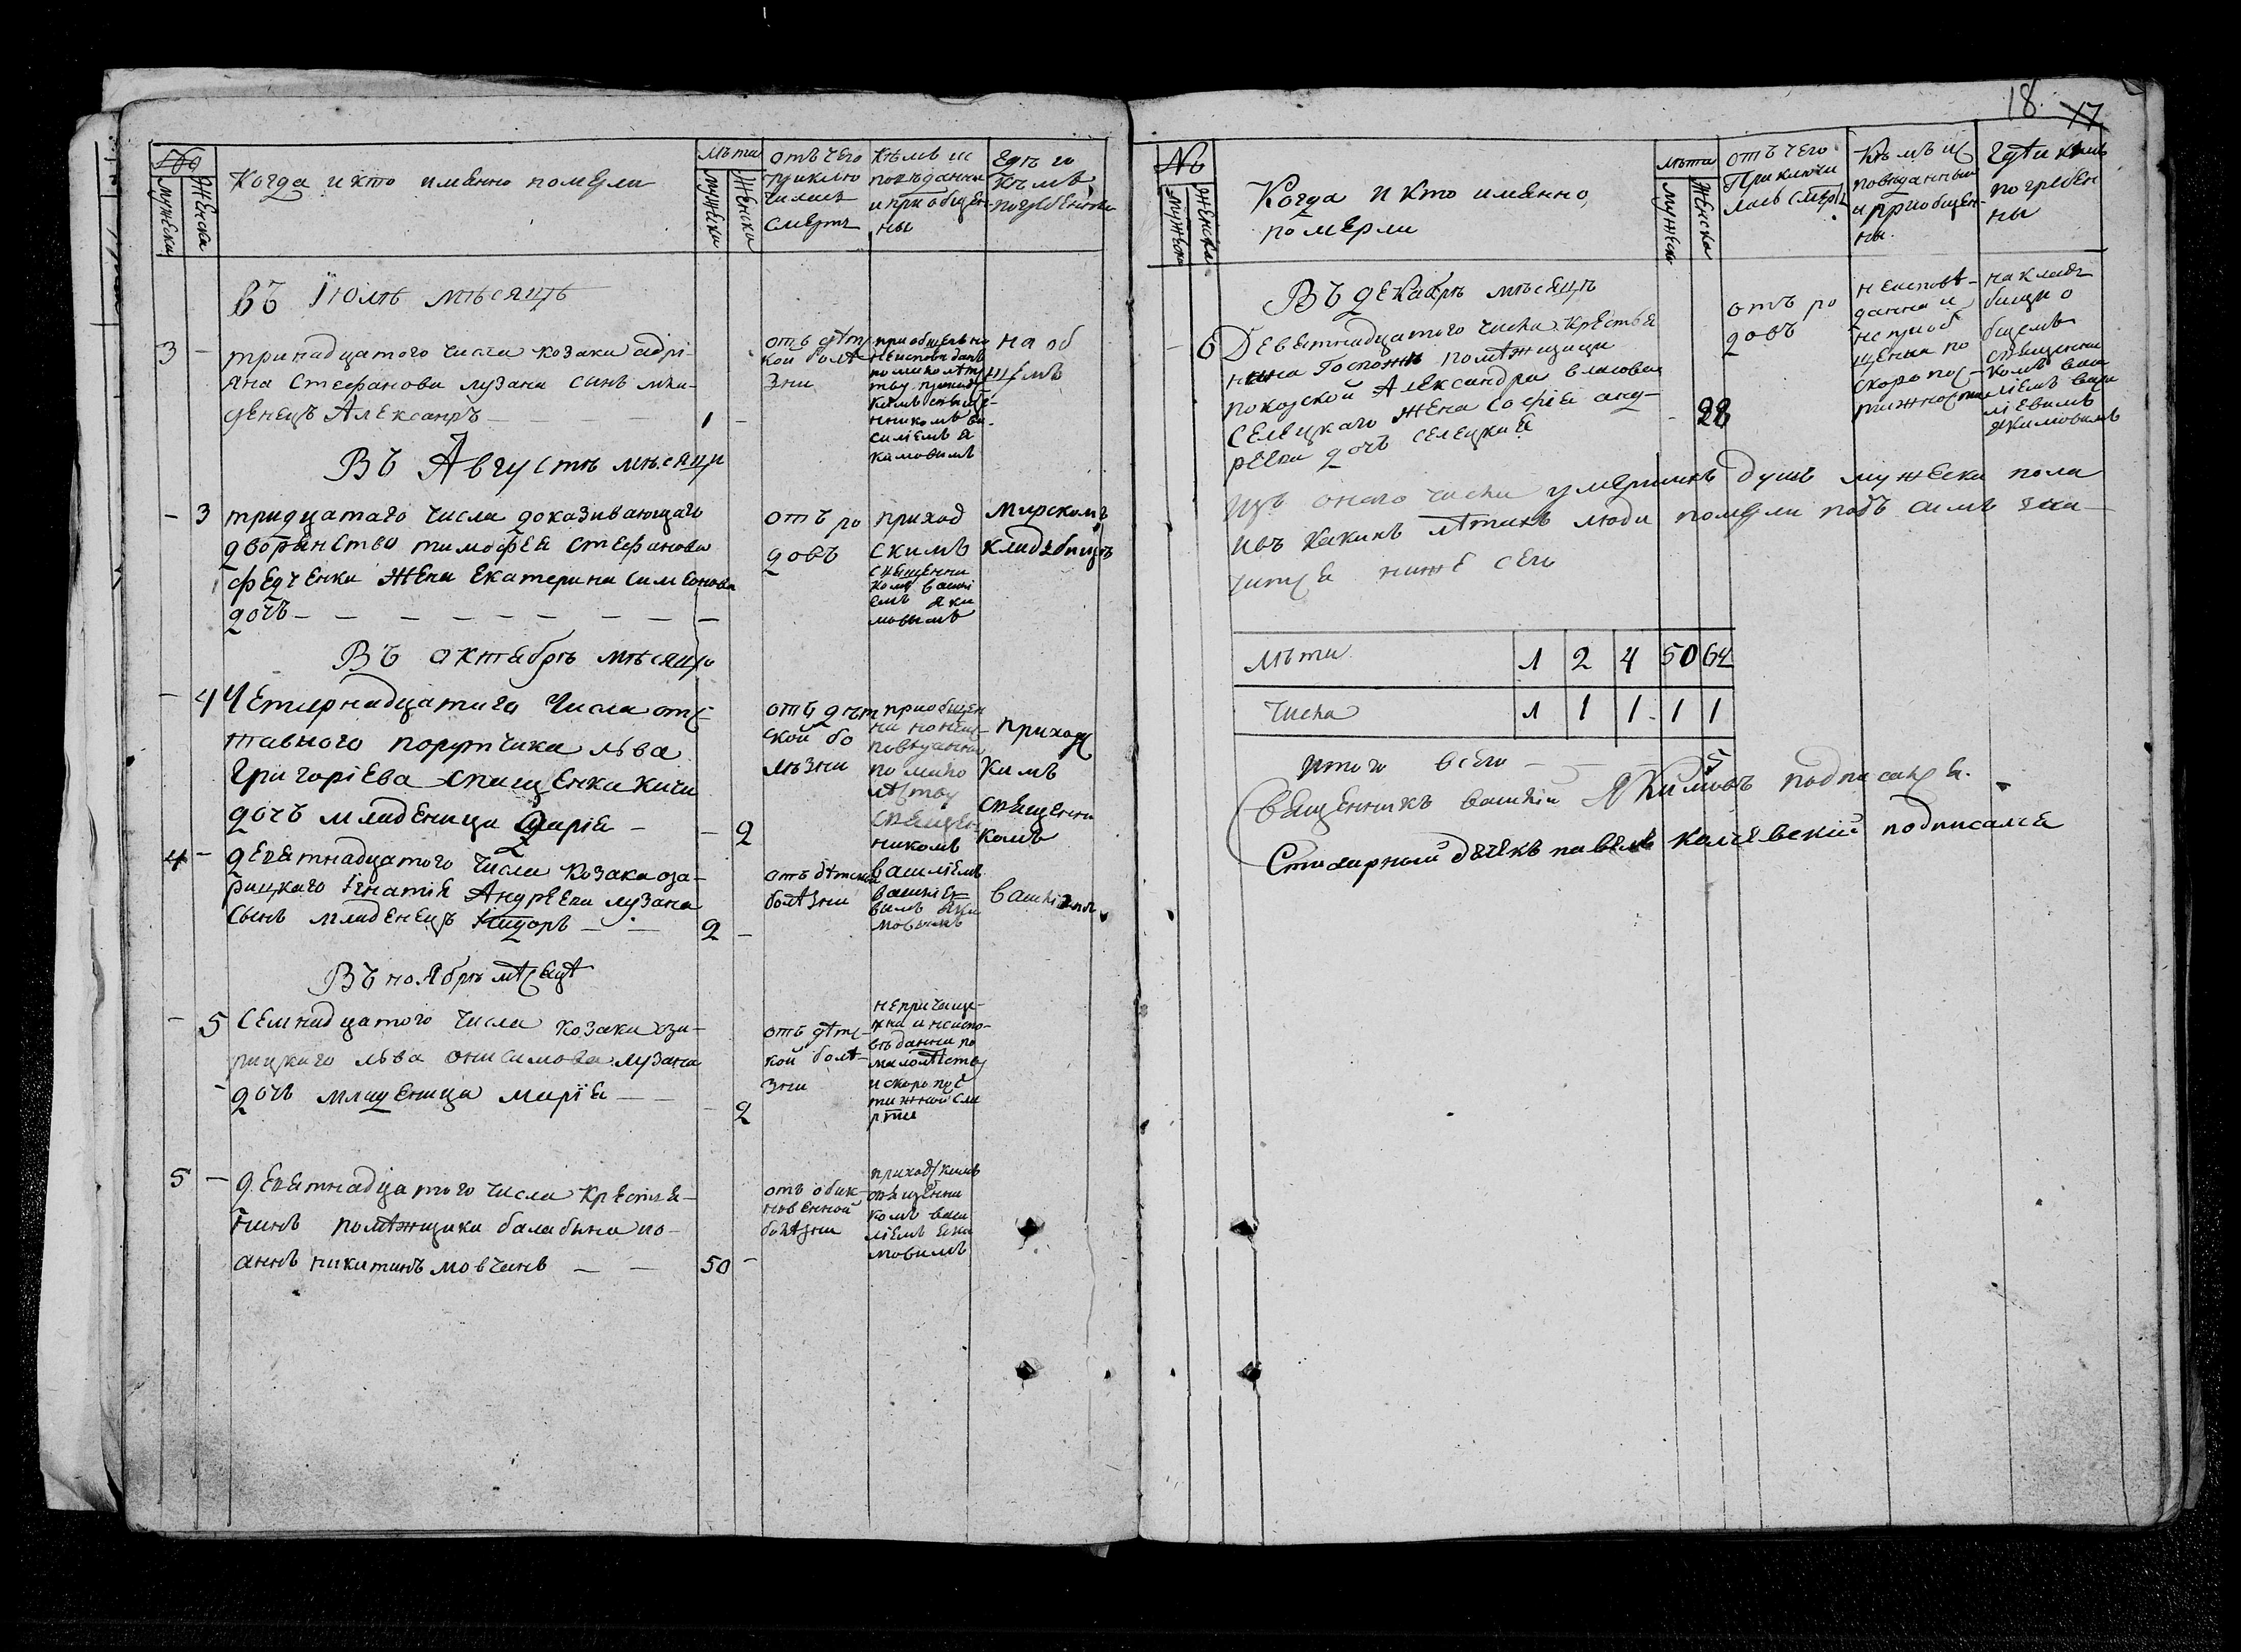 18. 17
№
мужска
женска
Когда и кто имянно померли
Лѣта
мужска
женска
отъ чего
приклю
чилась
смерть
кѣмъ ис
повѣданны
и приобщен
ны
гдѣ и
кѣмъ
погребенны
Въ Іюлѣ мѣсяцѣ
3 -
тринадцатого числа козака адрі-
яна Стефанова лузана сынъ мла-
денецъ Алексанръ
1 -
отъ дѣтс
кой болѣ
зни
приобщенъ но
неисповѣданъ
по малолѣтс
тву приход
кимъ священ-
никомъ ва-
силіемъ я
кимовимъ
на об
щемъ
Въ Августѣ мѣсяци
- 3
тридцатаго числа доказивающаго
дворянство тимофея стефанова
федченка жена екатерина симеонова
дочъ
отъ ро
довъ
приход
скимъ
священни
комъ василі
емъ яки
мовымъ
мирскомъ
кладъбищѣ
Въ октябрѣ мѣсяцѣ
- 4
Четирнадцатига числа отс
тавного порутчика льва
Григоріева
дочъ младеница дарія
- 2
отъ дѣт
ской бо
лѣзни
приобщен
на но неис
повѣданна
по мало
лѣтству
священ
никомъ
василіемъ
василіе
вимъ яки
мовымъ
приходс
кимъ
священни
комъ
4 -
девятнадцатого числа козака оза-
рицкаго Ігнатія Андреева лузана
сынъ младенецъ сидоръ
2 -
отъ дѣтской
болѣзни
Въ ноябрѣ мѣсяцѣ
- 5
Семнадцатого числа козака оза-
рицкаго льва онисимова лузана
дочъ младеница марія
- 2
отъ дѣтс-
кой болѣ-
зни
непричаще-
нна и неиспо-
вѣданна по
малолѣтству
и скоропос
тижной сме
рти
5 -
девятнадцатого числа крестья-
нинъ помѣжщика балабина ио-
аннъ никитинъ мовчанъ
50 -
отъ обик-
новенной
болѣзни
приходскимъ
священни
комъ васи
ліемъ яки
мовимъ
№
мужска
женска
Когда и кто имянно,
померли
лѣта
мужска
женска
отъ чего
Приключи
лась смерть
Кѣмъ ис
повѣданный
и приобщен-
ны.
Гдѣ и кѣмъ
погребен
ны
Въ декабрѣ мѣсяцѣ
- 6
Девятнадцатого числа крестья
нина Госпожи помѣжщици
покорской Александра власова
селецкаго жена софія анд-
реева дочъ селецкия
- 28
отъ ро
довъ
неисповѣ-
данна и
неприоб
щенна по
скоропос-
тижности
на кладъ
бищи о
бщемъ
священни
комъ васи
ліемъ васи
лієвимъ
якимовимъ
изъ оного числа умершихъ душъ мужеска пола
изъ какихъ лѣтихъ люди померли подъ симъ зна-
читься ниже сего
Лѣта 1 2 4 50 64
Числа 1 1 1 1 1
итого всего 5
Священникъ василій Якимовъ подписался.
Стихарный дячекъ павелъ подписался